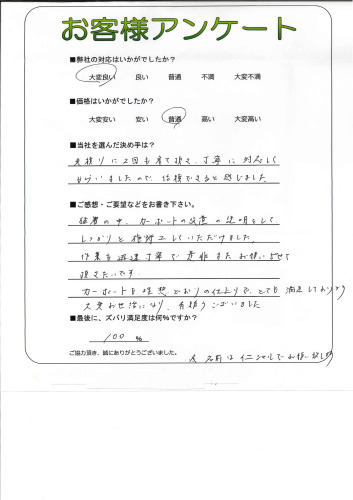 お客様アンケート
■弊社の対応はいかがでしたか?
大変良い 良い 普通 不満 大変不満
■価格はいかがでしたか?
大変安い 安い 普通 高い 大変高い
■当社を選んだ決め手は?
見積りに2回も来て頂き、丁寧に対応して
もらいましたので、信頼できると感じました
■ご感想・ご要望などをお書き下さい。
猛暑の中、カーポートの設置の説明をして、
しっかりと施工していただけました。
作業も迅速丁寧で是非またお願いさせて
頂きたいです。
カーポートも理想どおりの仕上りで、とても満足しております
大変お世話になり、有難うございました
■最後に、ズバリ満足度は何%ですか?
100 %
ご協力頂き、誠にありがとうございました。
名前はイニシャルでお願い致します